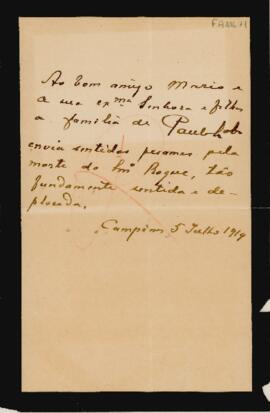 Ao bom amigo Mario e
a sua exmª Senhora e filhos
a familia de Paulo Lobo
envia sentidos pesames pela
morte do Snr Roque, tão
fundamente sentida e de-
plorada.
Campinas 5 Julho 1919